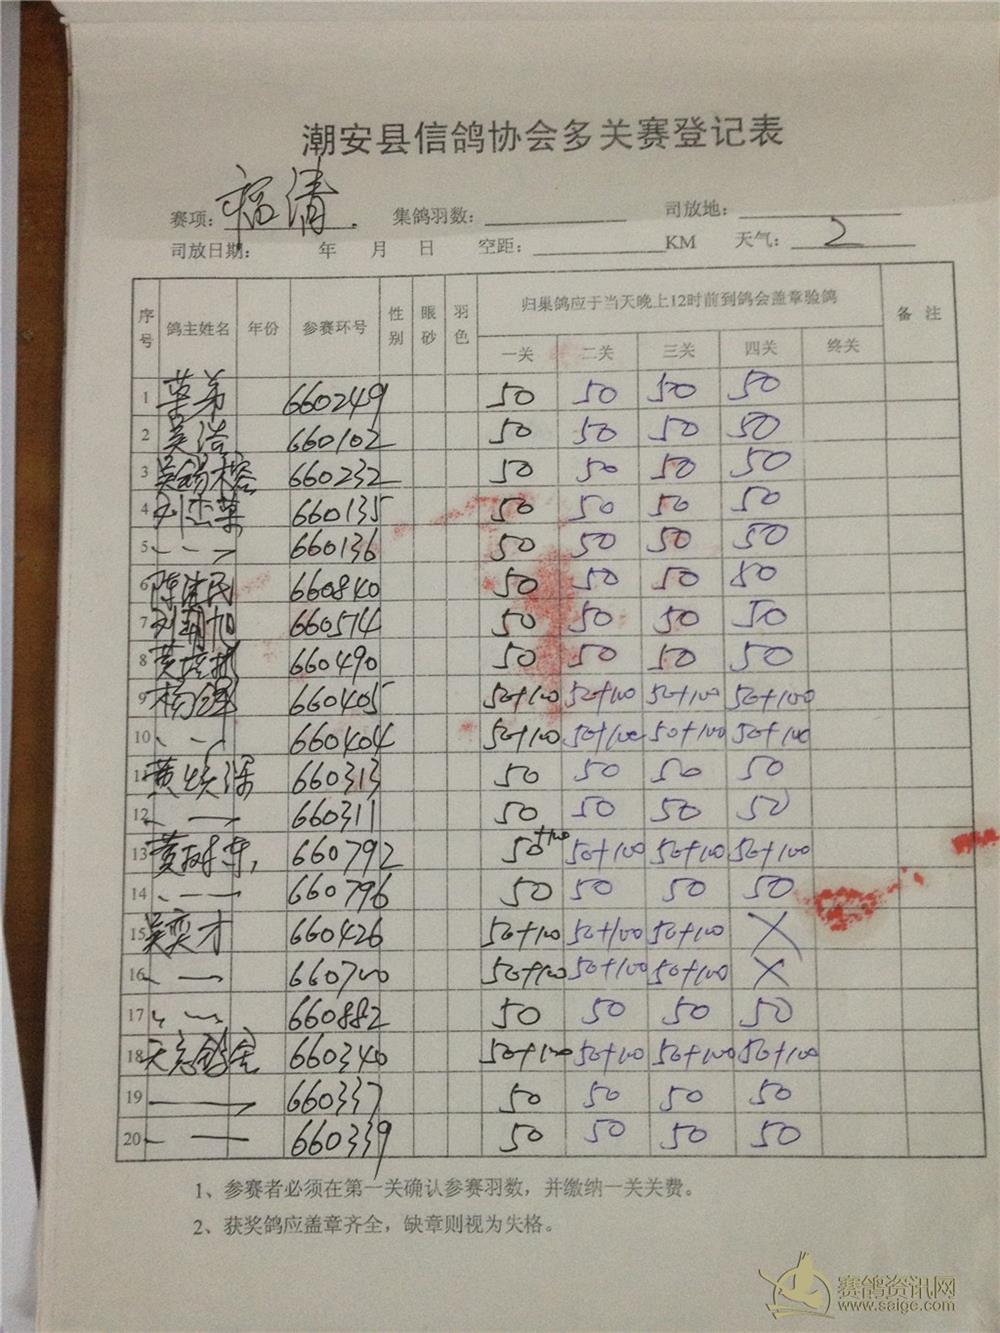 潮安县信鸽协会多关赛登记表
赛项：福清 集鸽羽数： 司放地：
司放日期： 年 月 日 空距： KM 天气： 2
序号 鸽主姓名 年份 参赛环号 性别 眼砂 羽色 归巢鸽应于当天晚上12时前到鸽会盖章验鸽 备 注
一关 二关 三关 四关 终关
1 草弟 660249 50 50 50 50
2 吴浩 660102 50 50 50 50
3 吴锡木容 660232 50 50 50 50
4 660135 50 50 50 50
5 660136 50 50 50 50
6 陈 民 660840 50 50 50 50
7 刘 旭 660574 50 50 50 50
8 黄 660490 50 50 50 50
9 杨 660405 50+100 50+100 50+100 50+100
10 660404 50+100 50+100 50+100 50+100
11 黄 深 660313 50 50 50 50
12 660311 50 50 50 50
13 黄树东 660792 50+100 50+100 50+100 50+100
14 660796 50 50 50 50
15 吴奕才 660426 50+100 50+100 50+100 ×
16 660700 50+100 50+100 50+100 ×
17 660882 50 50 50 50
18 660340 50+100 50+100 50+100 50+100
19 660337 50 50 50 50
20 660339 50 50 50 50
1、参赛者必须在第一关确认参赛羽数，并缴纳一关关费。
2、获奖鸽应盖章齐全，缺章则视为失格。
赛鸽资讯网
www.saige.com